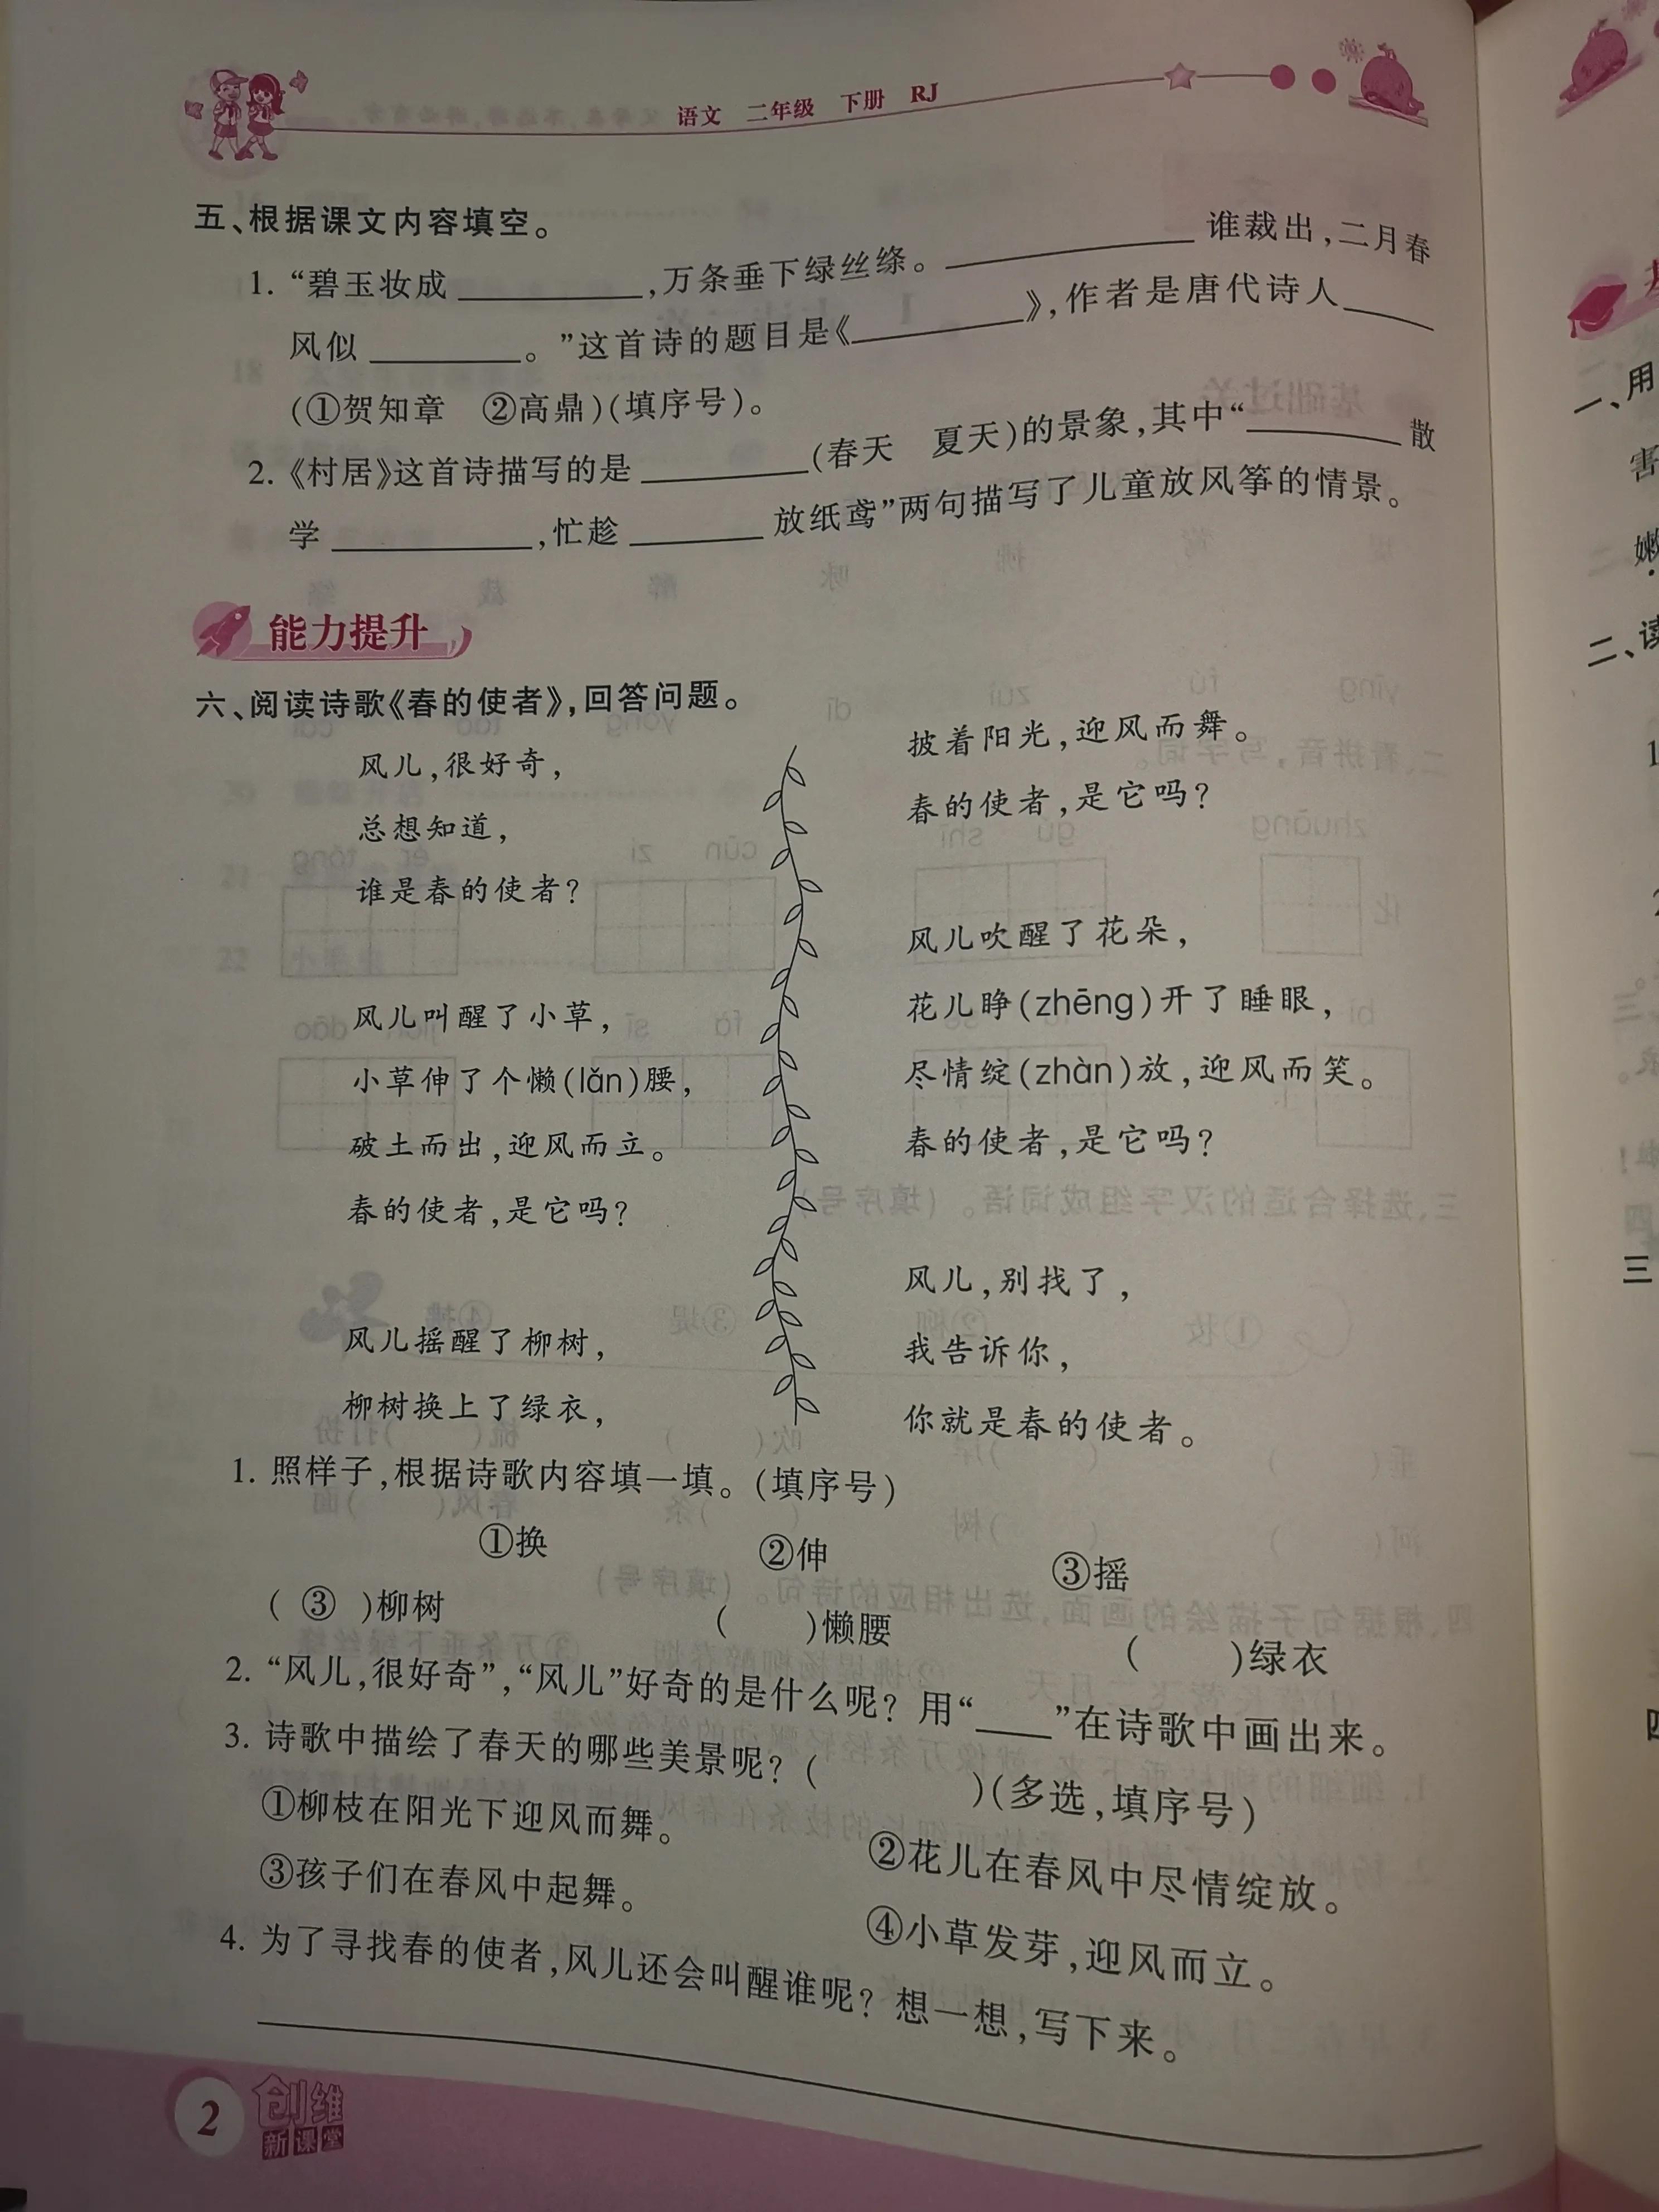 语文 二年级 下册 RJ
五、根据课文内容填空。
1. “碧玉妆成________,万条垂下绿丝绦。________谁裁出,二月春
风似________。”这首诗的题目是《________》,作者是唐代诗人____
(①贺知章 ②高鼎)(填序号)。
2.《村居》这首诗描写的是________(春天 夏天)的景象,其中“________散
学________,忙趁________放纸鸢”两句描写了儿童放风筝的情景。
能力提升
六、阅读诗歌《春的使者》,回答问题。
风儿,很好奇,
总想知道,
谁是春的使者?
风儿叫醒了小草,
小草伸了个懒(lǎn)腰,
破土而出,迎风而立。
春的使者,是它吗?
风儿摇醒了柳树,
柳树换上了绿衣,
披着阳光,迎风而舞。
春的使者,是它吗?
风儿吹醒了花朵,
花儿睁(zhēng)开了睡眼,
尽情绽(zhàn)放,迎风而笑。
春的使者,是它吗?
风儿,别找了,
我告诉你,
你就是春的使者。
1. 照样子,根据诗歌内容填一填。(填序号)
①换 ②伸 ③摇
( ③ )柳树 ( )懒腰 ( )绿衣
2. “风儿,很好奇”,“风儿”好奇的是什么呢? 用“____”在诗歌中画出来。
3. 诗歌中描绘了春天的哪些美景呢? ( )(多选,填序号)
①柳枝在阳光下迎风而舞。 ②花儿在春风中尽情绽放。
③孩子们在春风中起舞。 ④小草发芽,迎风而立。
4. 为了寻找春的使者,风儿还会叫醒谁呢? 想一想,写下来。
2 创维
新课堂
一、用
害
嫩
二、读
三
四